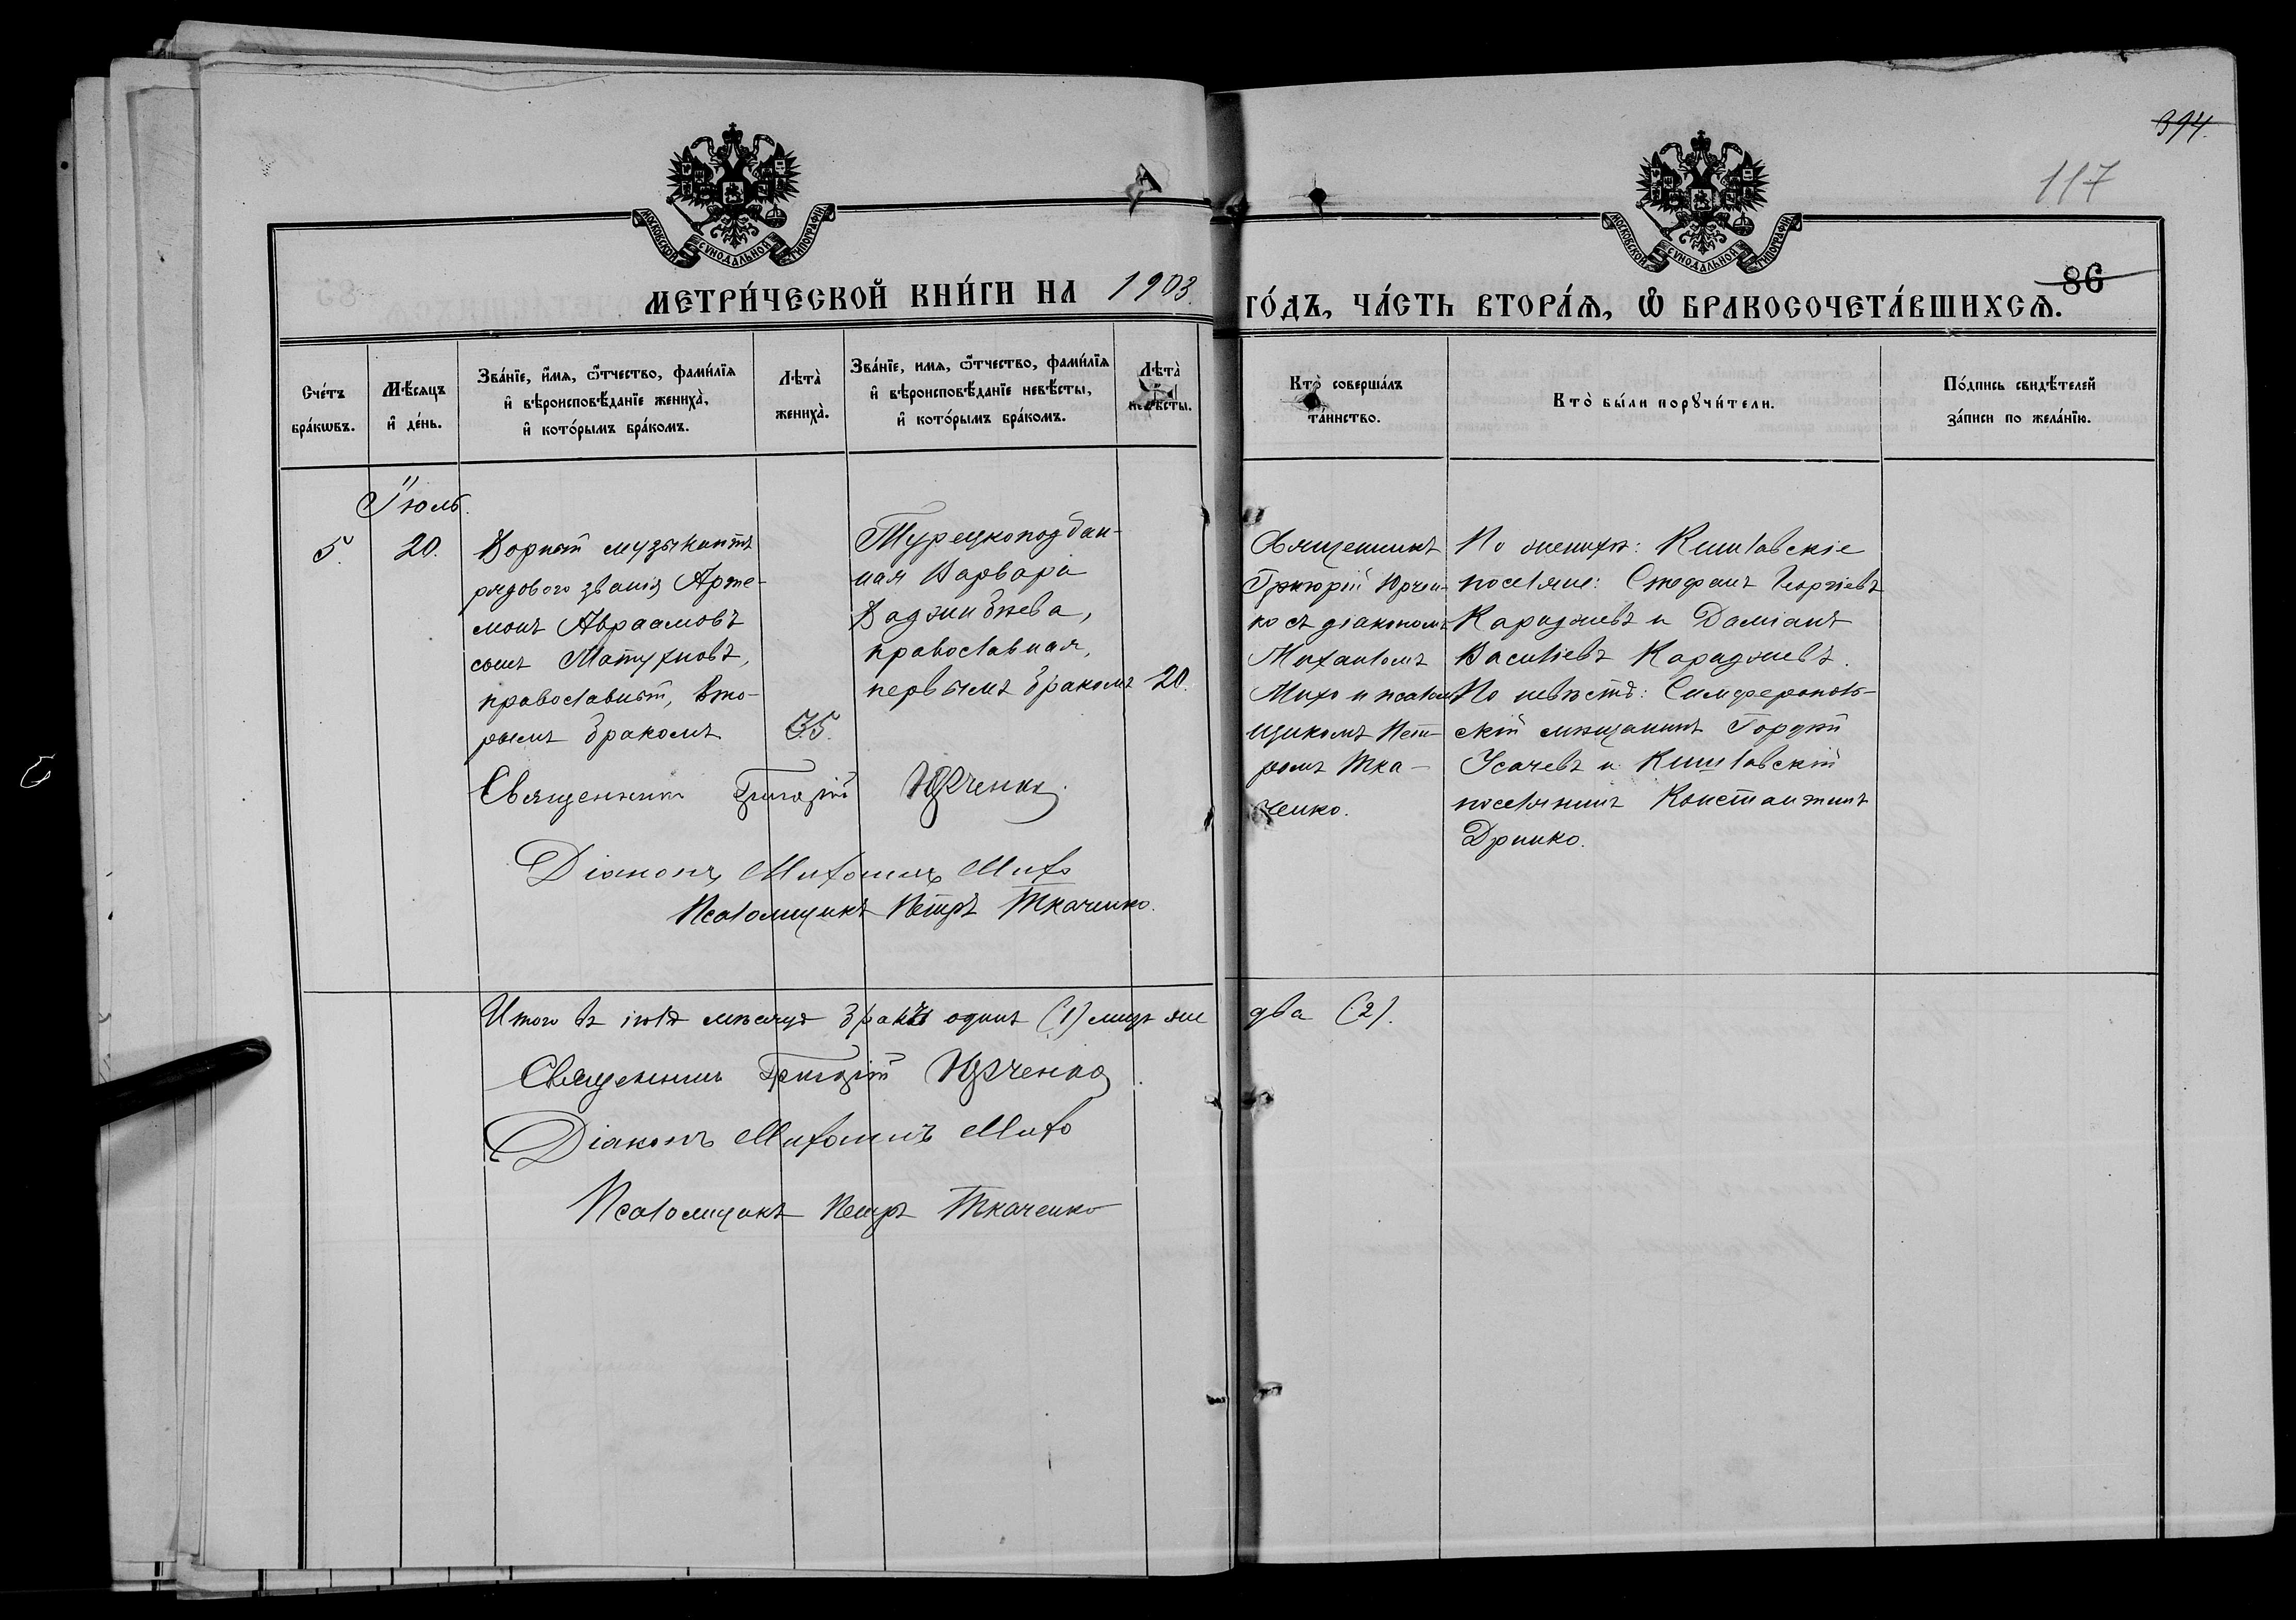 394.
117
МОСКОВСКОЙ СУНОДАЛЬНОЙ ТИПОГРАФІИ
МОСКОВСКОЙ СУНОДАЛЬНОЙ ТИПОГРАФІИ
86
МЕТРИ́ЧЕСКОЙ КНИ́ГИ НА 1903. ГО́ДЪ, ЧА́СТЬ ВТОРА́Ѧ, Ѡ҆ БРАКОСОЧЕТА́ВШИХСѦ.
Сче́тъ
бра́кѡвъ.
Мѣ́сѧцъ
и҆ де́нь.
Зва́нїе, и҆́мѧ, ѻ҆́тчество, фами́лїѧ
и҆ вѣроисповѣ́данїе жениха̀,
и҆ кото́рымъ бра́комъ.
Лѣта̀
жениха̀.
Зва́нїе, имѧ, ѻ҆́тчество, фами́лїѧ
и҆ вѣроисповѣ́данїе невѣ́сты,
и҆ кото́рымъ бра́комъ.
Лѣта̀
невѣсты.
Кто̀ соверша́лъ
та́инство.
Кто̀ бы́ли порꙋчи́тели.
По́дпись свидѣ́телей
за́писи по жела́нїю.
Іюль.
5. 20.
музыкантъ
рядового званія Арте-
монъ Авраамовъ
сынъ
православный, вто-
рымъ бракомъ
35.
Турецкоподдан-
ная Варвара
православная,
первымъ бракомъ
20.
Священникъ
Григорій Юрчен-
ко съ діакономъ
Михаиломъ
Михо и псалом-
щикомъ Пет-
ромъ Тка-
ченко.
По женихѣ: Кишлавскіе
поселяне: Стефанъ Георгіевъ
Караджевъ и Даміанъ
Василіевъ Караджевъ.
По невѣстѣ: Симферополь-
скій мѣщанинъ Гордѣй
Усачевъ и Кишлавскій
поселянинъ Константинъ
Дринко.
Священникъ Григорій Юрченко.
Діаконъ Михаилъ Михо
Псаломщикъ Петръ Ткаченко.
Итого въ іюлѣ мѣсяцѣ бракъ одинъ (1) лицъ же два (2).
Священникъ Григорій Юрченко
Діаконъ Михаилъ Михо
Псаломщикъ Петръ Ткаченко